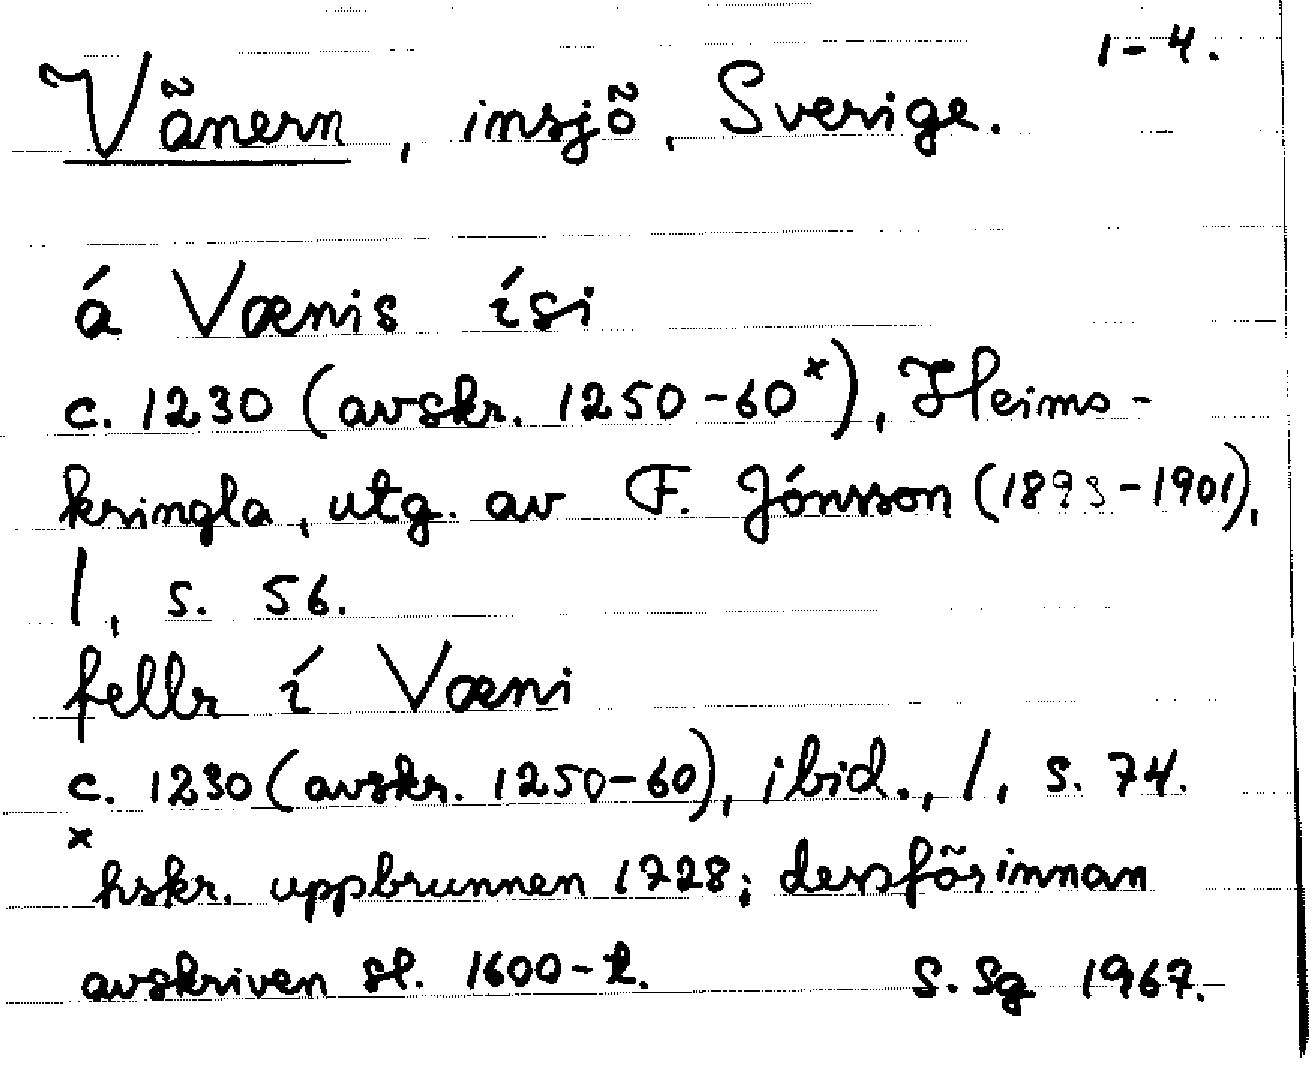 1-4.
Vänern, insjö, Sverige.
á Vænis ísi
c. 1230 (avskr. 1250-60*), Heims-
kringla, utg. av F. Jónsson (1893-1901),
1, s. 56.
fellr í Væni
c. 1230 (avskr. 1250-60), ibid., 1, s. 74.
* hskr. uppbrunnen 1728; dessförinnan
avskriven sl. 1600-t. S. Sg 1967.